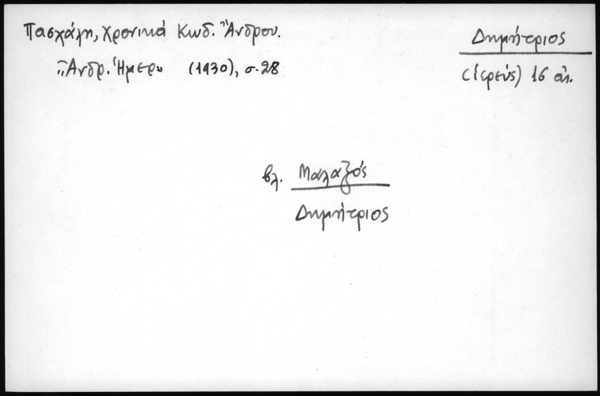 Πασχάλη, Χρονικά Κωδ. Ἄνδρου.
Δημήτριος
"Ἀνδρ. Ἡμερ» (1930), σ. 28
(ἱερεύς) 16 αἰ.
βλ. Μαλαζός
Δημήτριος